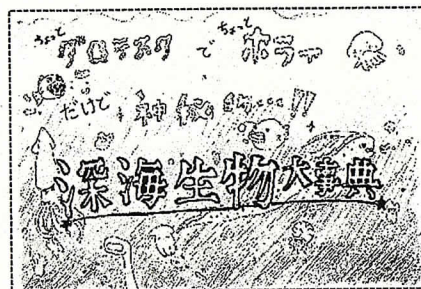 ちょっとグロテスクでちょっとホラー
だけど神秘的…!!
深海生物大事典